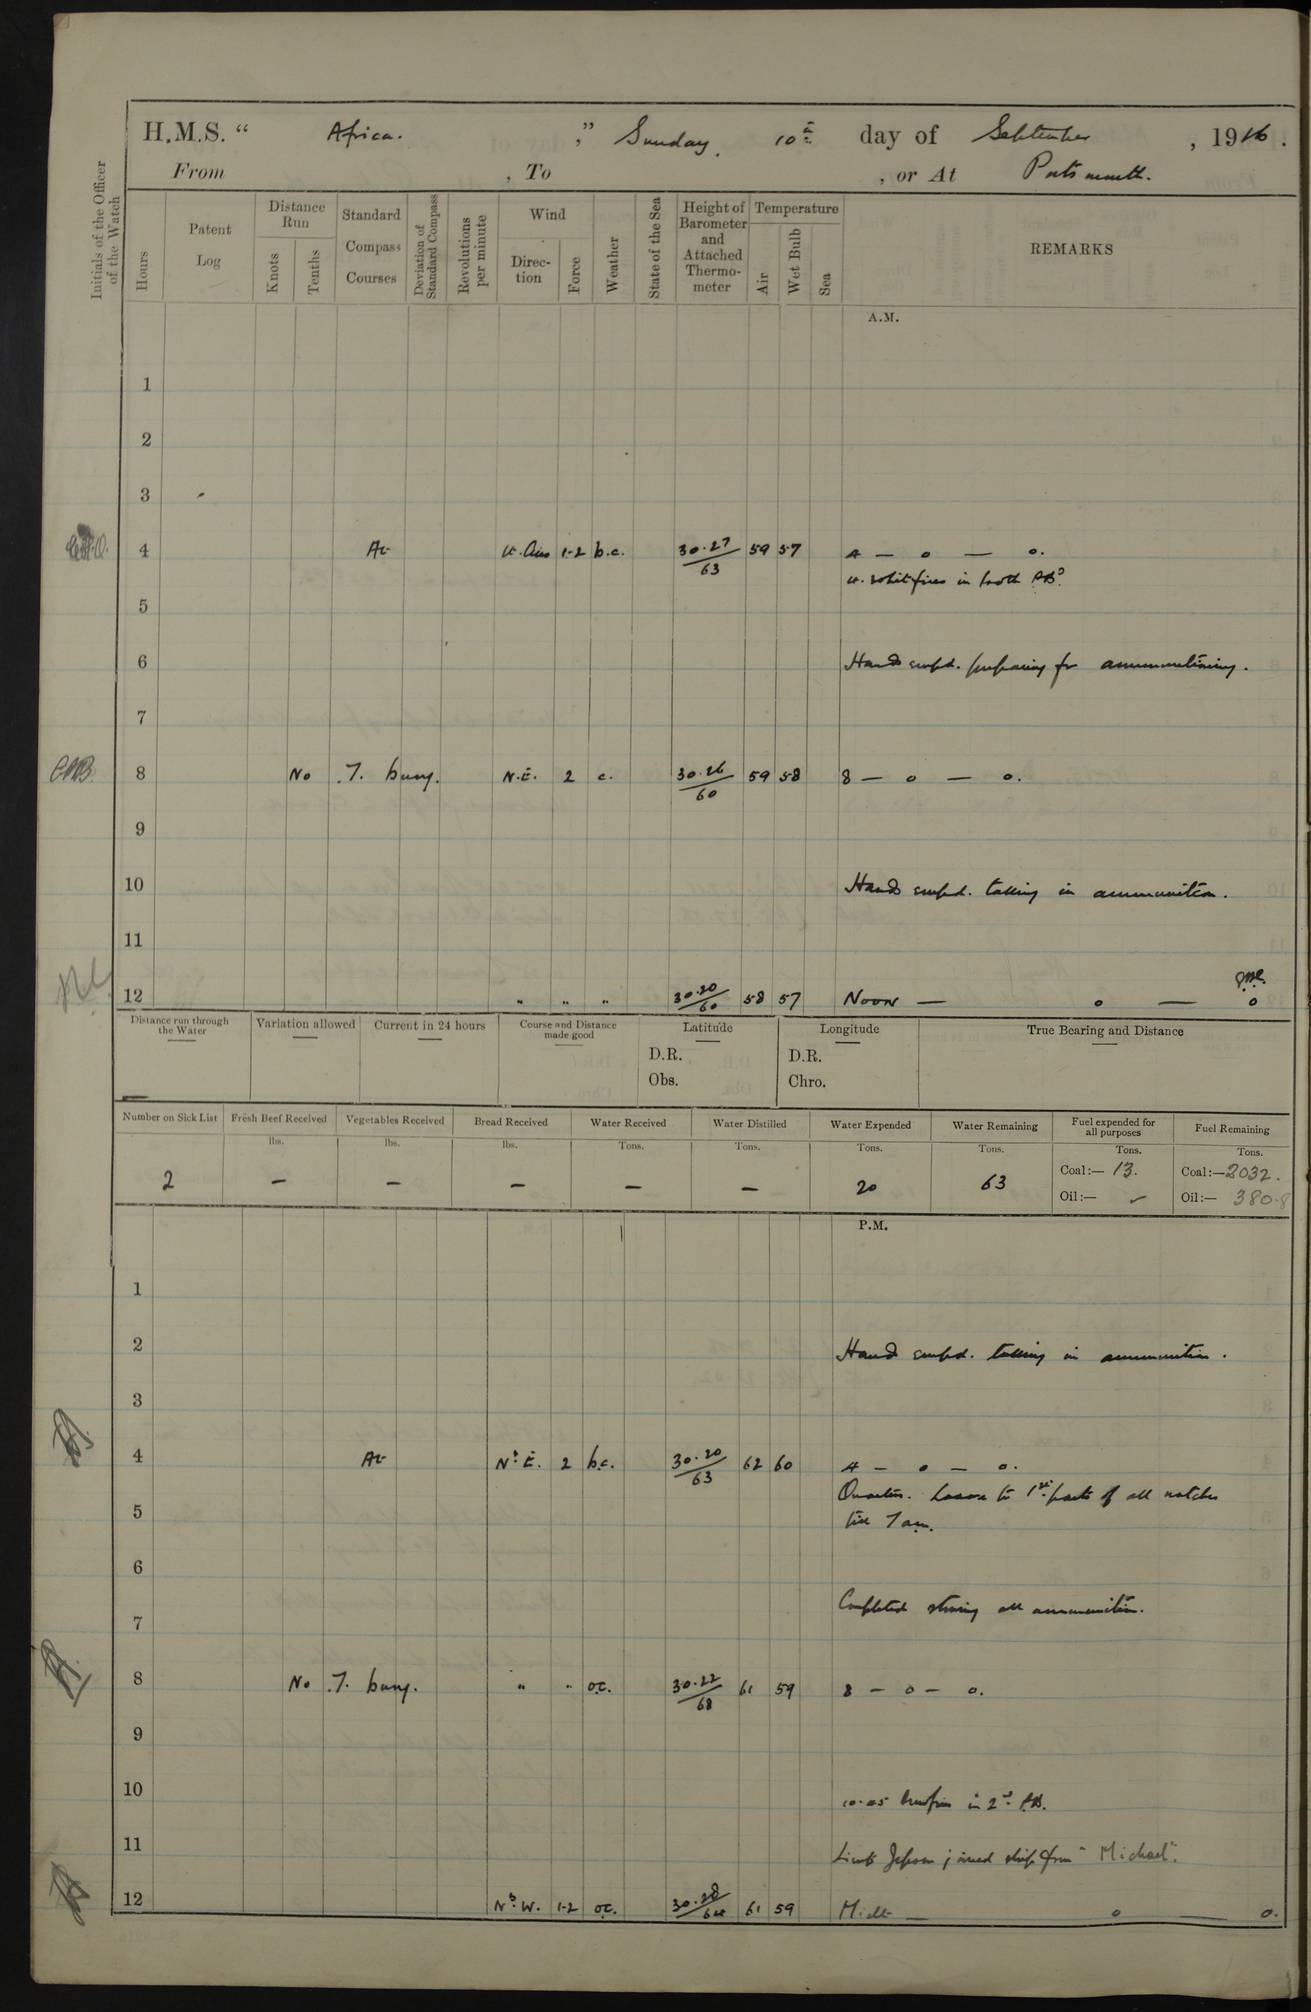 H.M.S. “ Africa. ,” Sunday, 10th day of September , 1916.
From , To , or At Portsmouth.
Initials of the Officer of the Watch
Hours
Patent Log
Distance Run
Knots
Tenths
Standard Compass Courses
Deviation of Standard Compass
Revolutions per minute
Wind
Direction
Force
Weather
State of the Sea
Height of Barometer and Attached Thermometer
Temperature
Air
Wet Bulb
Sea
REMARKS
A.M.
1
2
3
4 At 1-2 b.c. 30.27/63 59 57 4 — o — o.
in both
5
6 Hands empd. preparing for ammunitioning.
7
8 No. 7. buoy. N.E. 2 c. 30.26/60 59 58 8 — o — o.
9
10 Hands empd. taking in ammunition.
11
12 " " " 30.20/60 58 57 Noon — o — o
Distance run through the Water
Variation allowed
Current in 24 hours
Course and Distance made good
Latitude
D.R.
Obs.
Longitude
D.R.
Chro.
True Bearing and Distance
Number on Sick List
Fresh Beef Received
Vegetables Received
Bread Received
Water Received
Water Distilled
Water Expended
Water Remaining
Fuel expended for all purposes
Fuel Remaining
lbs. lbs. lbs. Tons. Tons. Tons. Tons. Tons. Tons.
2 — — — — — 20 63 Coal:— 13. Coal:— 2032.
Oil:— ✓ Oil:— 380.8
P.M.
1
2 Hands empd. taking in ammunition.
3
4 At N.E. 2 b.c. 30.20/63 62 60 4 — o — o.
Quarters. Leave to 1st part of all watches
5 till 7 am.
6
Completed storing all ammunition.
7
8 No. 7. buoy. " " o.c. 30.22/68 61 59 8 — o — o.
9
10 10.05 in 2nd
11 Lieut Jepson joined ship from "Michael".
12 N.W. 1-2 o.c. 30.28/64 61 59 Midt — o — o.